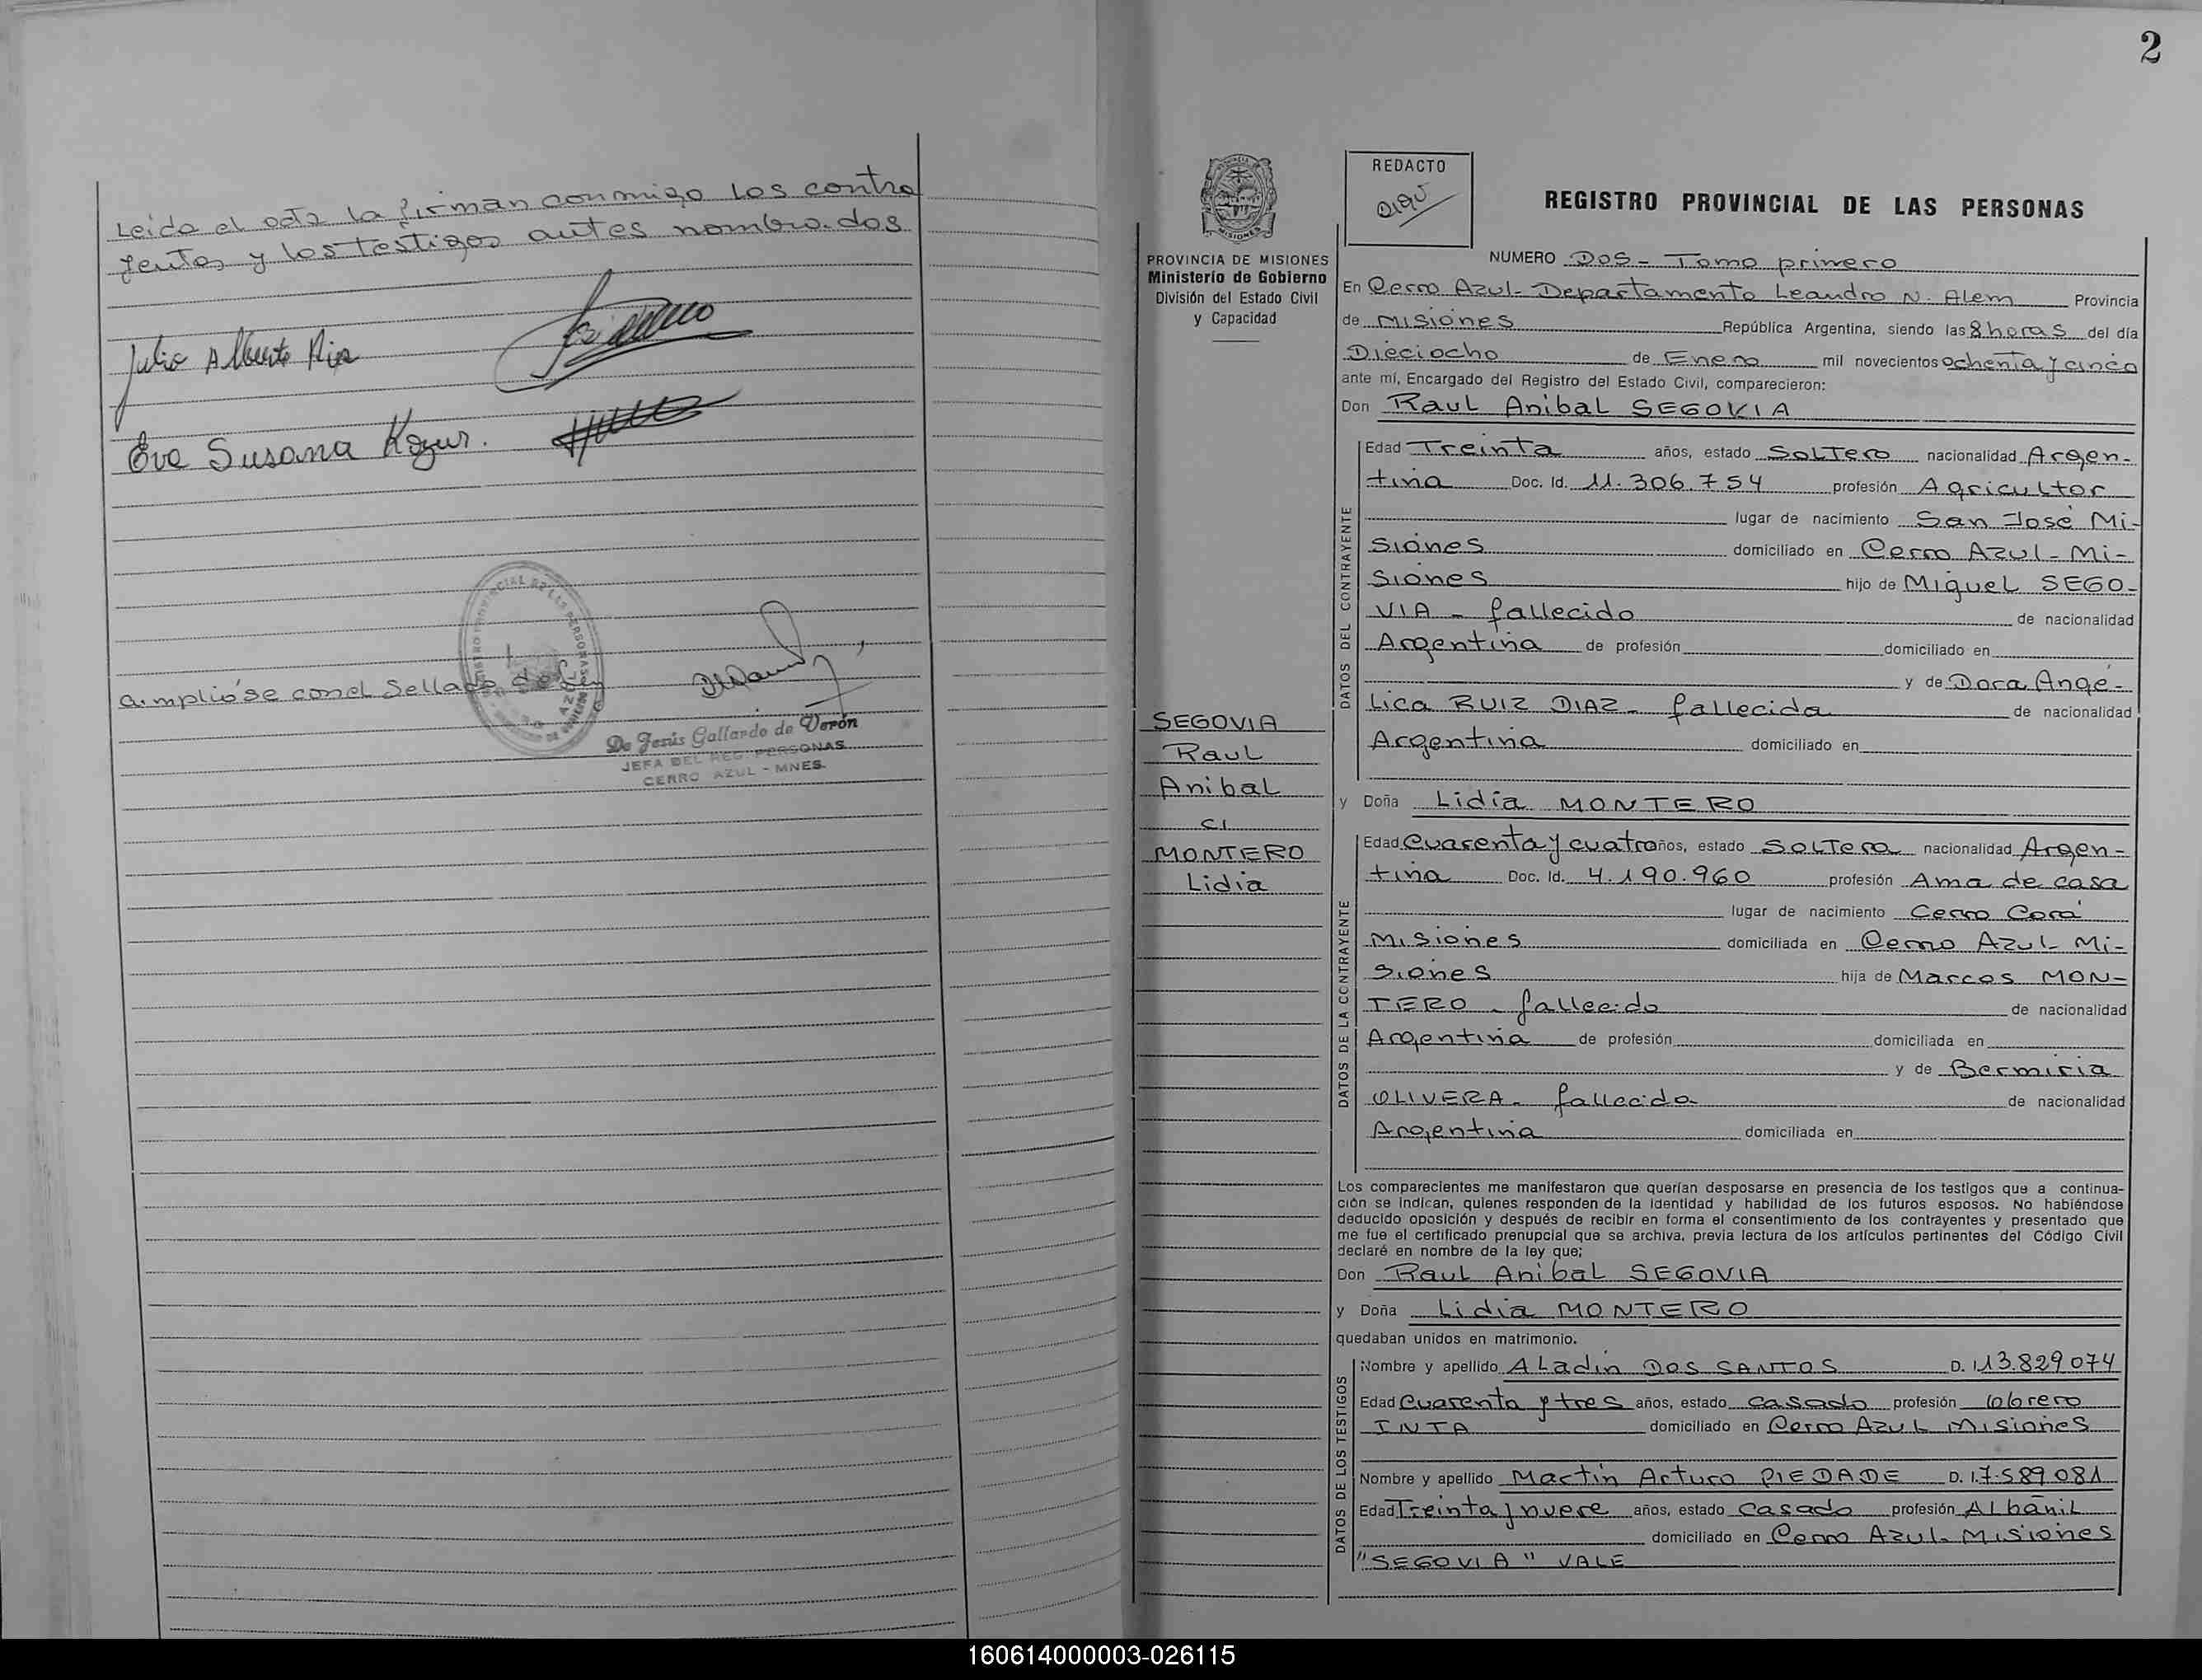 Leída el acta la firman conmigo los contra
yentes y los testigos antes nombrados
Julio Alberto
Eva Susana Kozur.
Cumplióse con el Sellado de Ley
De Jesús Gallardo de Verón
JEFA DEL REG. PERSONAS
CERRO AZUL - MNES.
2
PROVINCIA DE MISIONES
Ministerio de Gobierno
División del Estado Civil
y Capacidad
SEGOVIA
Raul
Anibal
c/
MONTERO
Lidia
REDACTO
REGISTRO PROVINCIAL DE LAS PERSONAS
NUMERO DOS - Tomo primero
En Cerro Azul - Departamento Leandro N. Alem Provincia
de Misiones República Argentina, siendo las 8 horas del día
Dieciocho de Enero mil novecientos ochenta y cinco
ante mí, Encargado del Registro del Estado Civil, comparecieron:
Don Raul Anibal SEGOVIA
DATOS DEL CONTRAYENTE
Edad Treinta años, estado Soltero nacionalidad Argen-
tina Doc. Id. 11.306.754 profesión Agricultor
lugar de nacimiento San José Mi-
siones domiciliado en Cerro Azul - Mi-
siones hijo de Miguel SEGO-
VIA - fallecido de nacionalidad
Argentina de profesión domiciliado en
y de Dora Angé-
lica RUIZ DIAZ - fallecida de nacionalidad
Argentina domiciliado en
y Doña Lidia MONTERO
DATOS DE LA CONTRAYENTE
Edad Cuarenta y cuatro años, estado Soltera nacionalidad Argen-
tina Doc. Id. 4.190.960 profesión Ama de casa
lugar de nacimiento Cerro Corá
Misiones domiciliada en Cerro Azul - Mi-
siones hija de Marcos MON-
TERO - fallecido de nacionalidad
Argentina de profesión domiciliada en
y de Bermiria
OLIVERA - fallecida de nacionalidad
Argentina domiciliada en
Los comparecientes me manifestaron que querían desposarse en presencia de los testigos que a continua-
ción se indican, quienes responden de la identidad y habilidad de los futuros esposos. No habiéndose
deducido oposición y después de recibir en forma el consentimiento de los contrayentes y presentado que
me fue el certificado prenupcial que se archiva, previa lectura de los artículos pertinentes del Código Civil
declaré en nombre de la ley que;
Don Raul Anibal SEGOVIA
y Doña Lidia MONTERO
quedaban unidos en matrimonio.
DATOS DE LOS TESTIGOS
Nombre y apellido Aladin DOS SANTOS D. I. 13.829.074
Edad Cuarenta y tres años, estado casado profesión Obrero
INTA domiciliado en Cerro Azul Misiones
Nombre y apellido Martin Arturo PIEDADE D. I. 7.589.081
Edad Treinta y nueve años, estado Casado profesión Albañil
domiciliado en Cerro Azul - Misiones
"SEGOVIA" VALE
160614000003-026115